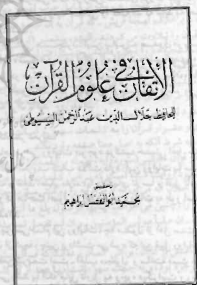 الإتقان في علوم القرآن
للحافظ جلال الدين عبد الرحمن السيوطي
تحقيق
محمد أبو الفضل إبراهيم